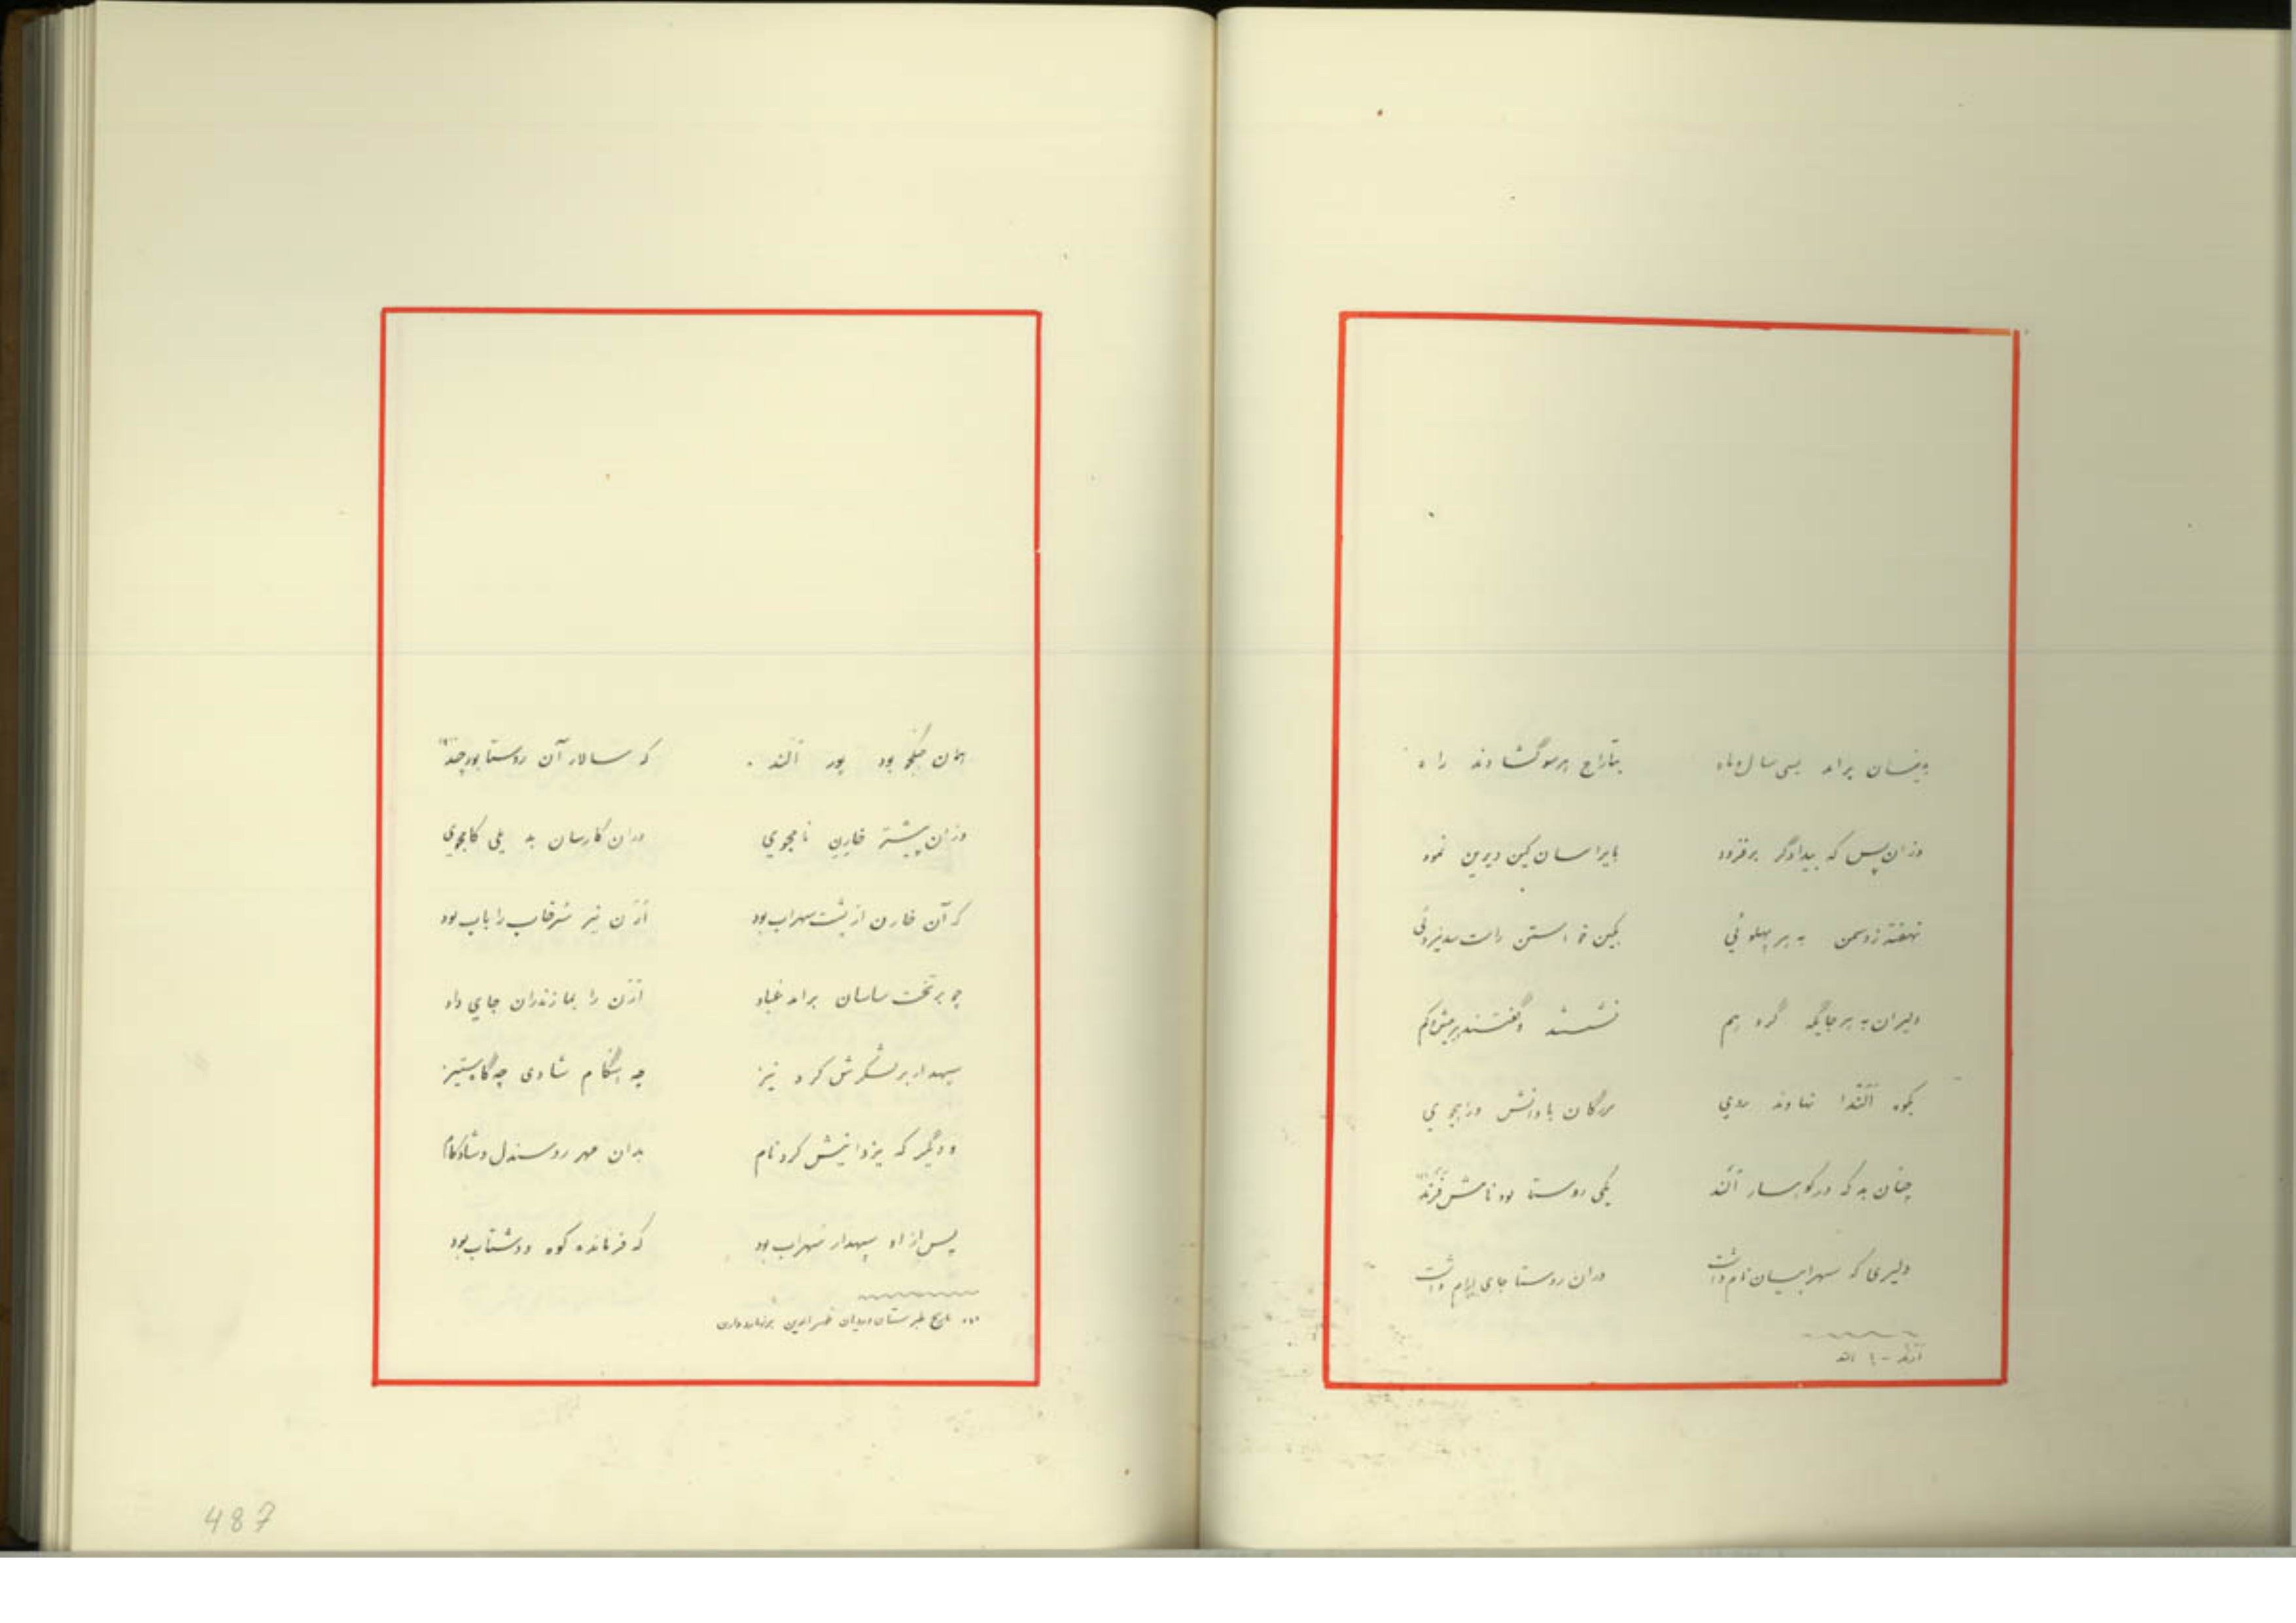 بدینسان برآمد بسی سال و ماه بتاراج هرسو گشادند راه
وزان پس که بیدادگر برفزود بایراسان کین دیرین نمود
نهفته ز دشمن به هر پهلوئی بکین خواستن راست
دلیران به هر جایگه گرد هم نشستند و گفتند
بکوه آلندا نهادند روی بزرگان با دانش و راهجوی
چنان بد که در کوهسار آلند یکی روستا بود نامش
دلیری که سهرابیسان نام داشت دران روستا جای آرام داشت
همان جنگجو بود پور آلند که سالار آن روستا بود چند
وزان پیشتر خارن نامجوی دران کارسان بد یلی کامجوی
که آن خارن از پشت سهراب بود آذن نیز شرخاب را باب بود
چو بر تخت ساسان برآمد غباد آذن را بمازندران جای داد
سپهدار بر لشکرش کرد نیز چه هنگام شادی چه گاه ستیز
و دیگر که یزدانیش کرد نام بدان مهر روسندل و شادکام
پس از او سپهدار سهراب بود که فرمانده کوه ودشتاب بود
تاریخ طبرستان
487